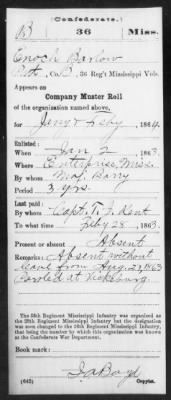 (Confederate.)
B 36 Miss.
Enoch Barlow
Pvt, Co. B, 36 Reg't Mississippi Vols.
Appears on
Company Muster Roll
of the organization named above,
for Jany & Feby, 1864.
Enlisted:
When Jan 2, 1863.
Where Enterprise, Miss.
By whom Maj. Barry
Period 3 yrs.
Last paid:
By whom Capt. T. J. Kent
To what time Feby 28, 1863.
Present or absent Absent
Remarks: Absent without
leave from Aug. 23, 1863
Paroled at Vicksburg
The 36th Regiment Mississippi Infantry was organized as
the 28th Regiment Mississippi Infantry but the designation
was soon changed to the 36th Regiment Mississippi Infantry,
that being the number by which this organization was known
at the Confederate War Department.
Book mark:
Boyd
(642) Copyist.